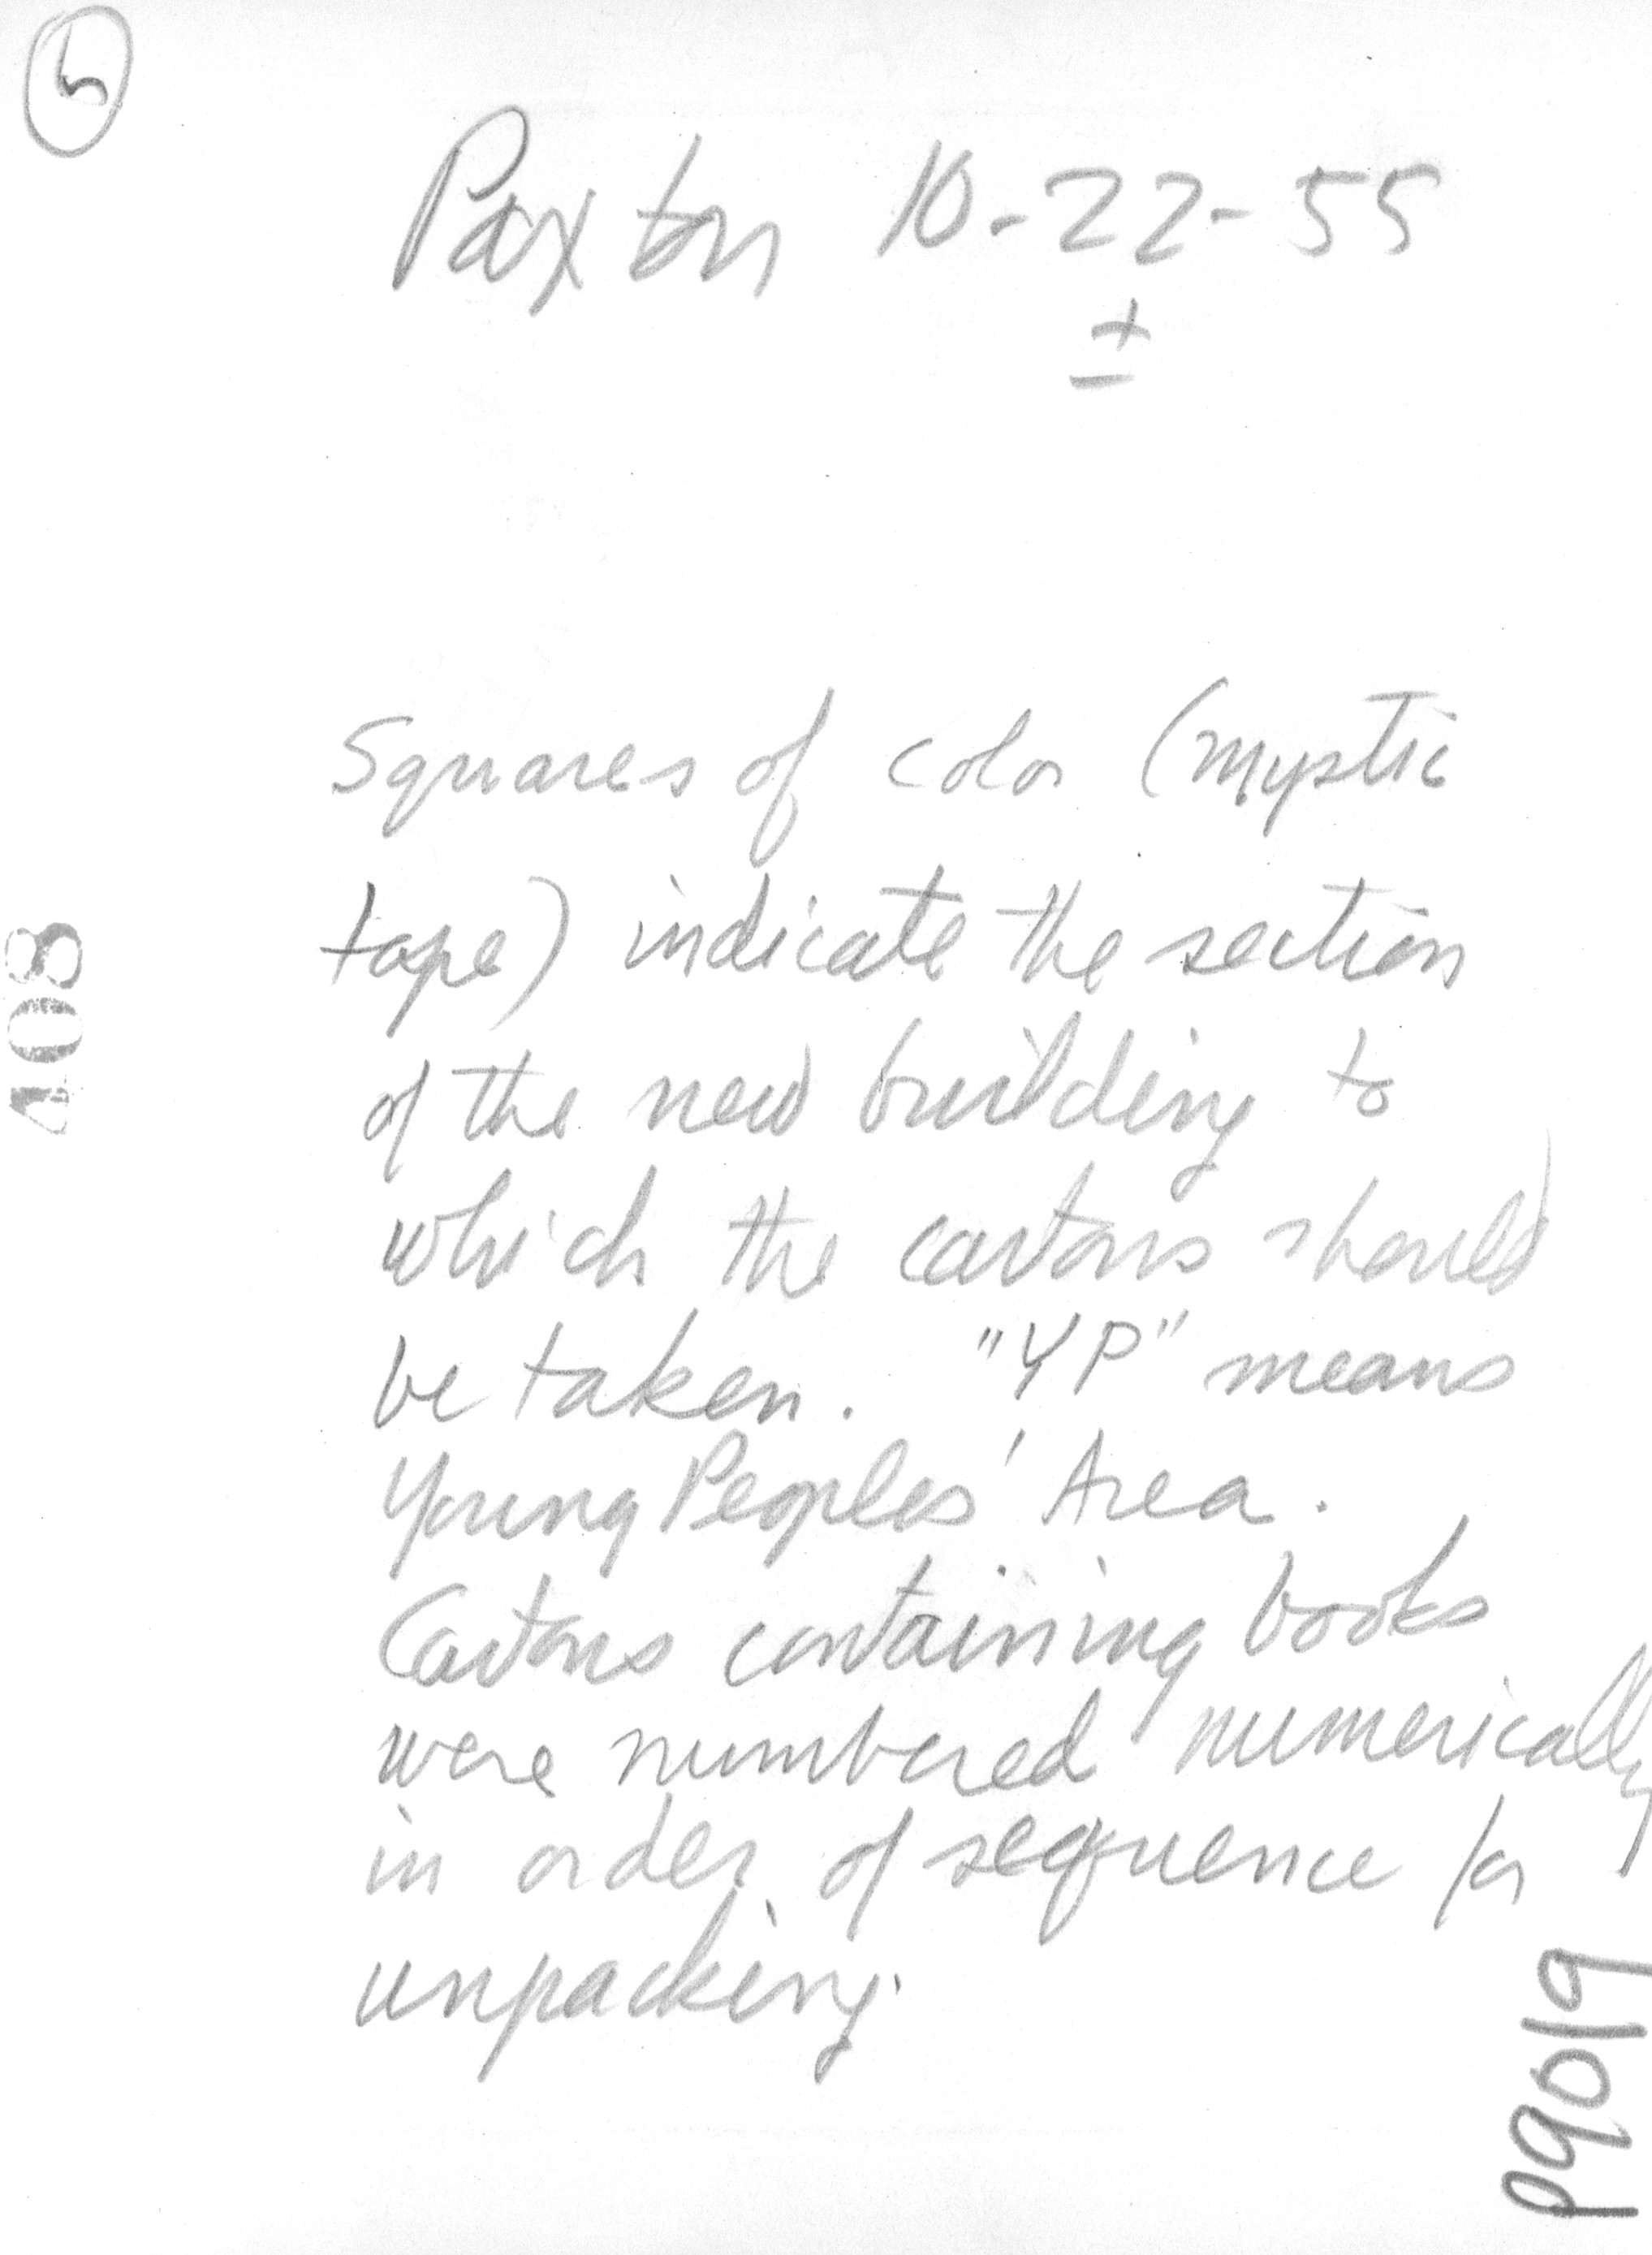 5
Paxton 10-22-55
±
Squares of color (mystic
tape) indicate the section
of the new building to
which the cartons should
be taken. "YP" means
Young Peoples' Area.
Cartons containing books
were numbered numerically
in order of sequence for
unpacking.
408
P9019